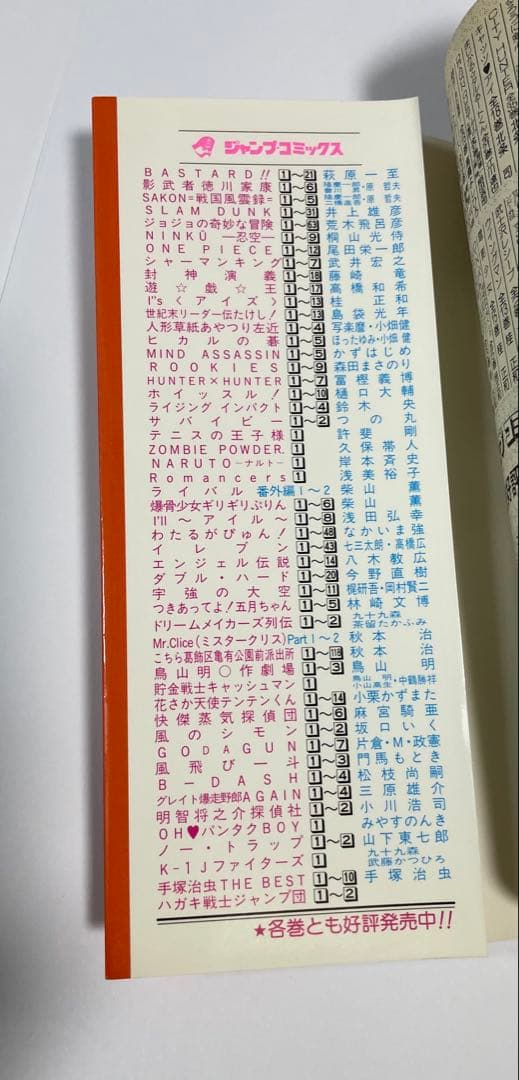 ジャンプ・コミックス
BASTARD!! 1～21 萩原一至
影武者徳川家康 1～6 隆慶一郎・原哲夫 會川昇
SAKON=戦国風雲録= 1～5 隆慶一郎・原哲夫 二橋進吾
SLAM DUNK 1～31 井上雄彦
ジョジョの奇妙な冒険 1～63 荒木飛呂彦
NINKŪ ―忍空― 1～9 桐山光侍
ONE PIECE 1～12 尾田栄一郎
シャーマンキング 1～7 武井宏之
封神演義 1～18 藤崎竜
遊☆戯☆王 1～17 高橋和希
I"s〈アイズ〉 1～13 桂正和
世紀末リーダー伝たけし! 1～13 島袋光年
人形草紙あやつり左近 1～4 写楽麿・小畑健
ヒカルの碁 1～5 ほったゆみ・小畑健
MIND ASSASSIN 1～5 かずはじめ
ROOKIES 1～9 森田まさのり
HUNTER×HUNTER 1～7 冨樫義博
ホイッスル! 1～10 樋口大輔
ライジング インパクト 1～4 鈴木央
サバイビー 1～2 つの丸
テニスの王子様 1 許斐剛
ZOMBIE POWDER. 1 久保帯人
NARUTO―ナルト― 1 岸本斉史
Romancers 1 浅美裕子
ライバル 番外編1～2 柴山薫
爆骨少女ギリギリぷりん 1～6 柴山薫
I'll～アイル～ 1～8 浅田弘幸
わたるがぴゅん! 1～48 なかいま強
イレブン 1～43 七三太朗・高橋広
エンジェル伝説 1～14 八木教広
ダブル・ハード 1～20 今野直樹
宇強の大空 1～11 梶研吾・岡村賢二
つきあってよ!五月ちゃん 1～5 林崎文博
ドリームメイカーズ列伝 1～2 九十九森 茶留たかふみ
Mr.Clice(ミスタークリス) Part1～2 秋本治
こちら葛飾区亀有公園前派出所 1～118 秋本治
鳥山明○作劇場 1～3 鳥山明
貯金戦士キャッシュマン 1 鳥山明・中鶴勝祥 小山高生
花さか天使テンテンくん 1～14 小栗かずまた
快傑蒸気探偵団 1～6 麻宮騎亜
風のシモン 1～2 坂口いく
GODAGUN 1～7 片倉・M・政憲
風飛び一斗 1～3 門馬もとき
B-DASH 1～4 松枝尚嗣
グレイト爆走野郎AGAIN 1～4 三原雄介
明智将之介探偵社 1～2 小川浩司
OH♥バンタクBOY 1 みやすのんき
ノー・トラップ 1～2 山下東七郎
K-1Jファイターズ 1 九十九森 武藤かつひろ
手塚治虫THE BEST 1～10 手塚治虫
ハガキ戦士ジャンプ団 1～2
★各巻とも好評発売中!!